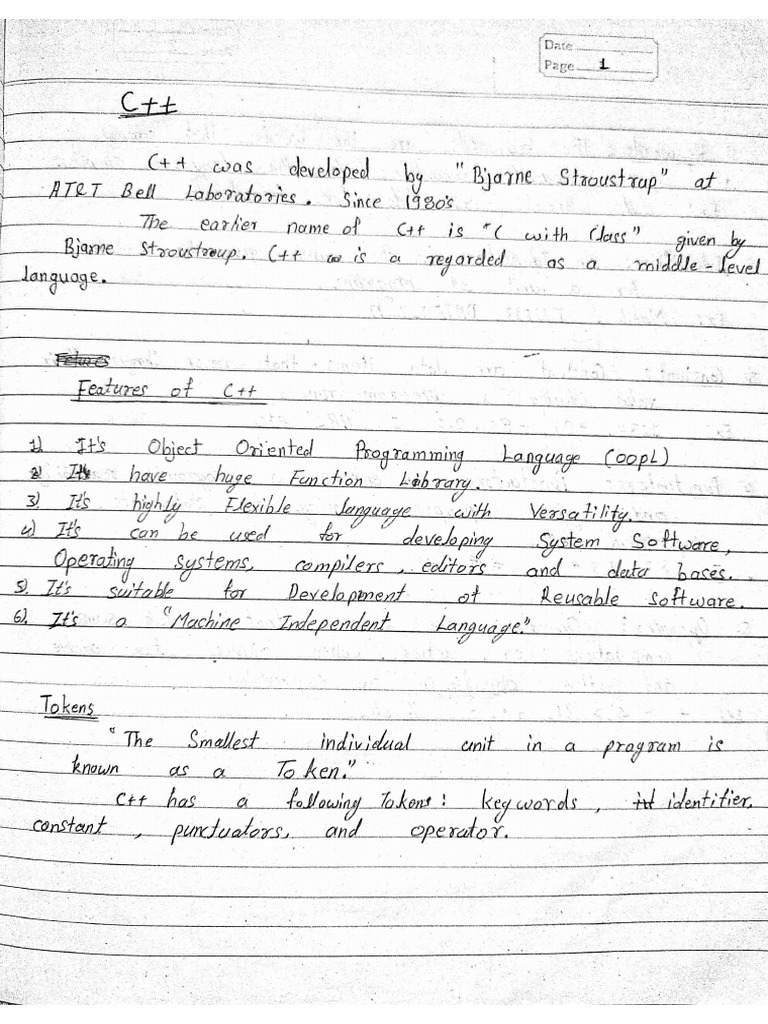 Date
Page 1
C++
C++ was developed by "Bjarne Stroustrup" at
AT&T Bell Laboratories. Since 1980's
The earlier name of C++ is "C with Class" given by
Bjarne Stroustroup. C++ is a regarded as a middle-level
language.
Features of C++
1) It's Object Oriented Programming Language (OOPL)
2) It's have huge Function Library.
3) It's highly Flexible language with Versatility.
4) It's can be used for developing System Software,
Operating systems, compilers, editors and data bases.
5). It's suitable for Development of Reusable Software.
6). It's a "Machine Independent Language."
Tokens
"The Smallest individual unit in a program is
known as a Token."
C++ has a following Tokens: keywords, identifier,
constant, punctuators, and operator.